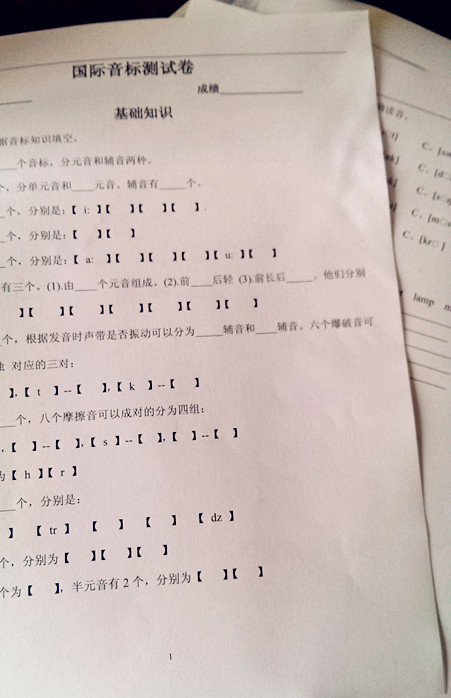 国际音标测试卷
成绩
基础知识
据音标知识填空。
____个音标，分元音和辅音两种。
个，分单元音和____元音。辅音有____个。
个，分别是:【 i: 】【 】【 】【 】.
个，分别是:【 】【 】
个，分别是:【 a: 】【 】【 】【 】【 u: 】【 】
有三个。(1).由____个元音组成。(2).前____后轻 (3).前长后____。他们分别
】【 】【 】【 】【 】【 】
个，根据发音时声带是否振动可以分为____辅音和____辅音。六个爆破音可
对应的三对:
】,【 t 】--【 】,【 k 】--【 】
____个，八个摩擦音可以成对的分为四组:
,【 】--【 】,【 s 】--【 】,【 】--【 】
为【 h 】【 r 】
____个，分别是:
】 【 tr 】 【 】 【 】 【 dz 】
个，分别为【 】【 】【 】
个为【 】，半元音有 2 个，分别为【 】【 】
1
读音。
C.
C.
C.
C.
C.
lamp